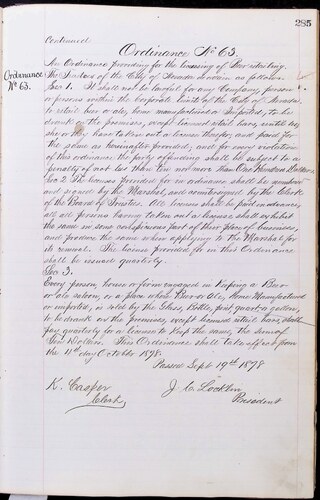 285
Continued
Ordinance No 63.
Ordinance
No 63.
An Ordinance providing for the licensing of Beer selling.
The Trustees of the City of Nevada ordain as follows.
Sec 1. It shall not be lawful for any Company, person
or persons within the corporate limits of the City of Nevada,
to retail beer or ale, home manufactured or imported, to be
drank on the premises, except licensed retail bars, until he
she or they have taken out a license therefor, and paid for
the same as hereinafter provided; and for every violation
of this ordinance the party offending shall be subject to a
penalty of not less than ten nor more than One Hundred Dollars.
Sec 2. The license provided for in ordinance shall be numbered
and signed by the Marshal, and countersigned by the Clerk
of the Board of Trustees. All licenses shall be paid in advance,
all persons having taken out a license shall exhibit
the same in some conspicuous part of their place of business,
and produce the same when applying to the Marshal for
its renewal. The license provided for in this Ordinance
shall be issued quarterly.
Sec 3.
Every person, house or firm engaged in keeping a Beer
or ale saloon, or a place where Beer or ale, Home Manufactured
or imported, is sold by the Glass, Bottle, pint quart or gallon,
to be drank on the premises, except licensed retail bars, shall
pay quarterly for a license to keep the same, the sum of
Ten Dollars. This Ordinance shall take effect from
the 1st day October 1878.
Passed Sept 19th 1878
K. Casper
Clerk
J. C. Locklin
President